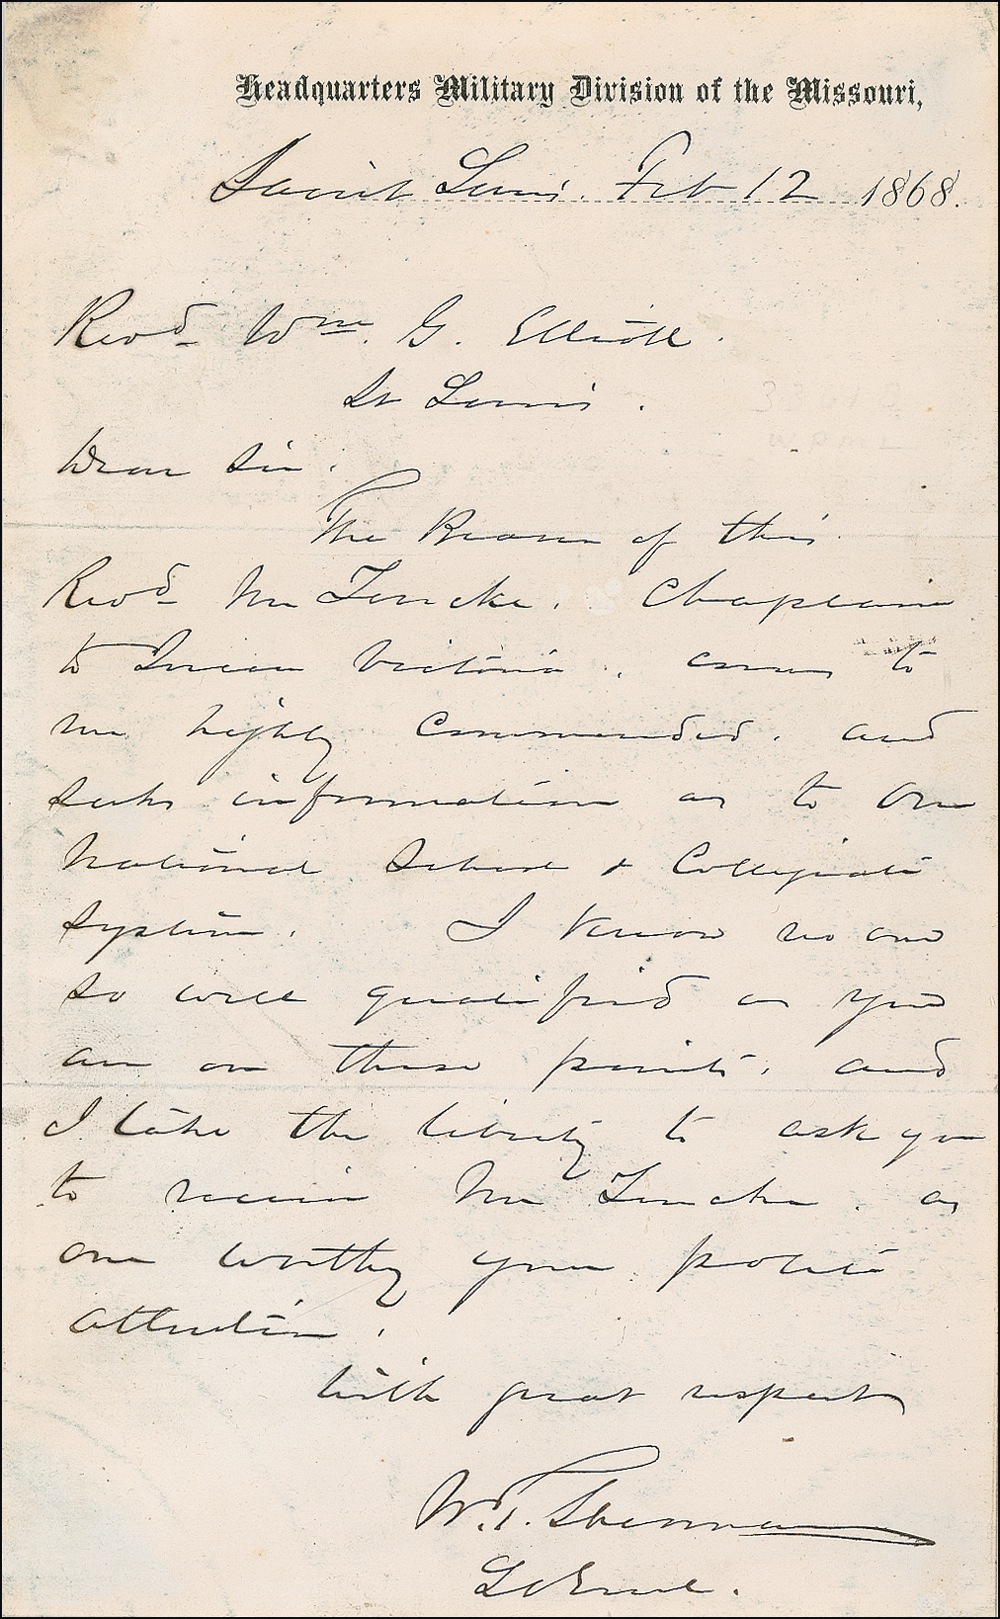 Headquarters Military Division of the Missouri,
Saint Louis. Feb 12 1868.
Revd Wm. G. Elliott.
St Louis.
Dear Sir.
The Bearer of this
Revd Mr Chaplain
to Queen Victoria, comes to
me highly commended, and
seeks information as to our
National School & Collegiate
system. I know no one
so well qualified as you
are on these points, and
I take the liberty to ask you
to receive Mr as
one worthy your polite
attention.
With great respect
W. T. Sherman
Lt Genl.